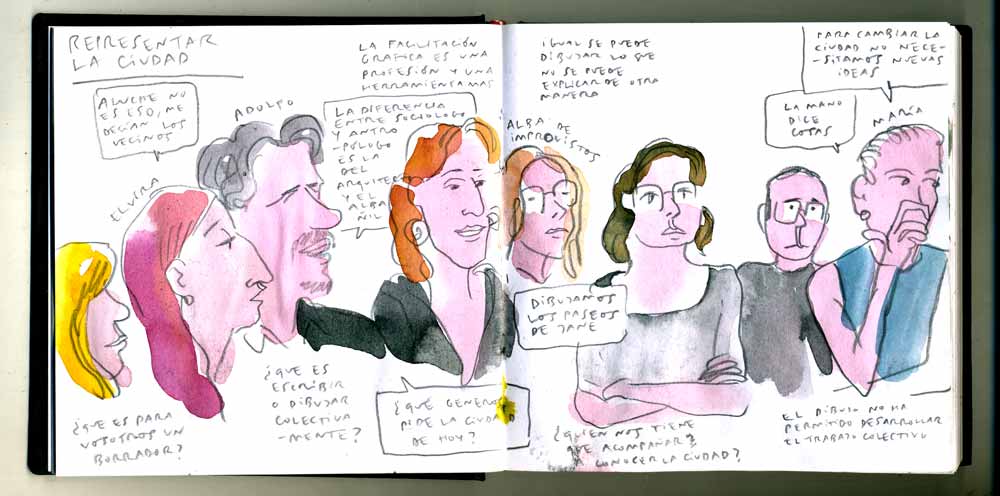 REPRESENTAR
LA CIUDAD
ALUCHE NO
ES ESO, ME
DECÍAN LOS
VECINOS
ELVIRA
ADOLFO
LA FACILITACIÓN
GRÁFICA ES UNA
PROFESIÓN Y UNA
HERRAMIENTA MAS
LA DIFERENCIA
ENTRE SOCIÓLOGO
Y ANTRO
-PÓLOGO
ES LA
DEL
ARQUITECTO
Y EL
ALBA
ÑIL
¿QUE ES PARA
VOSOTROS UN
BORRADOR?
¿QUE ES
ESCRIBIR
O DIBUJAR
COLECTIVA
-MENTE?
¿QUÉ GENERO
PIDE LA CIUDAD
DE HOY?
IGUAL SE PUEDE
DIBUJAR LO QUE
NO SE PUEDE
EXPLICAR DE OTRA
MANERA
ALBA DE
IMPREVISTOS
DIBUJAMOS
LOS PASEOS
DE JANE
¿QUIEN NOS TIENE
QUE ACOMPAÑAR
A CONOCER LA CIUDAD?
PARA CAMBIAR LA
CIUDAD NO NECE-
-SITAMOS NUEVAS
IDEAS
LA MANO
DICE
COSAS
MARÍA
EL DIBUJO NO HA
PERMITIDO DESARROLLAR
EL TRABAJO COLECTIVO